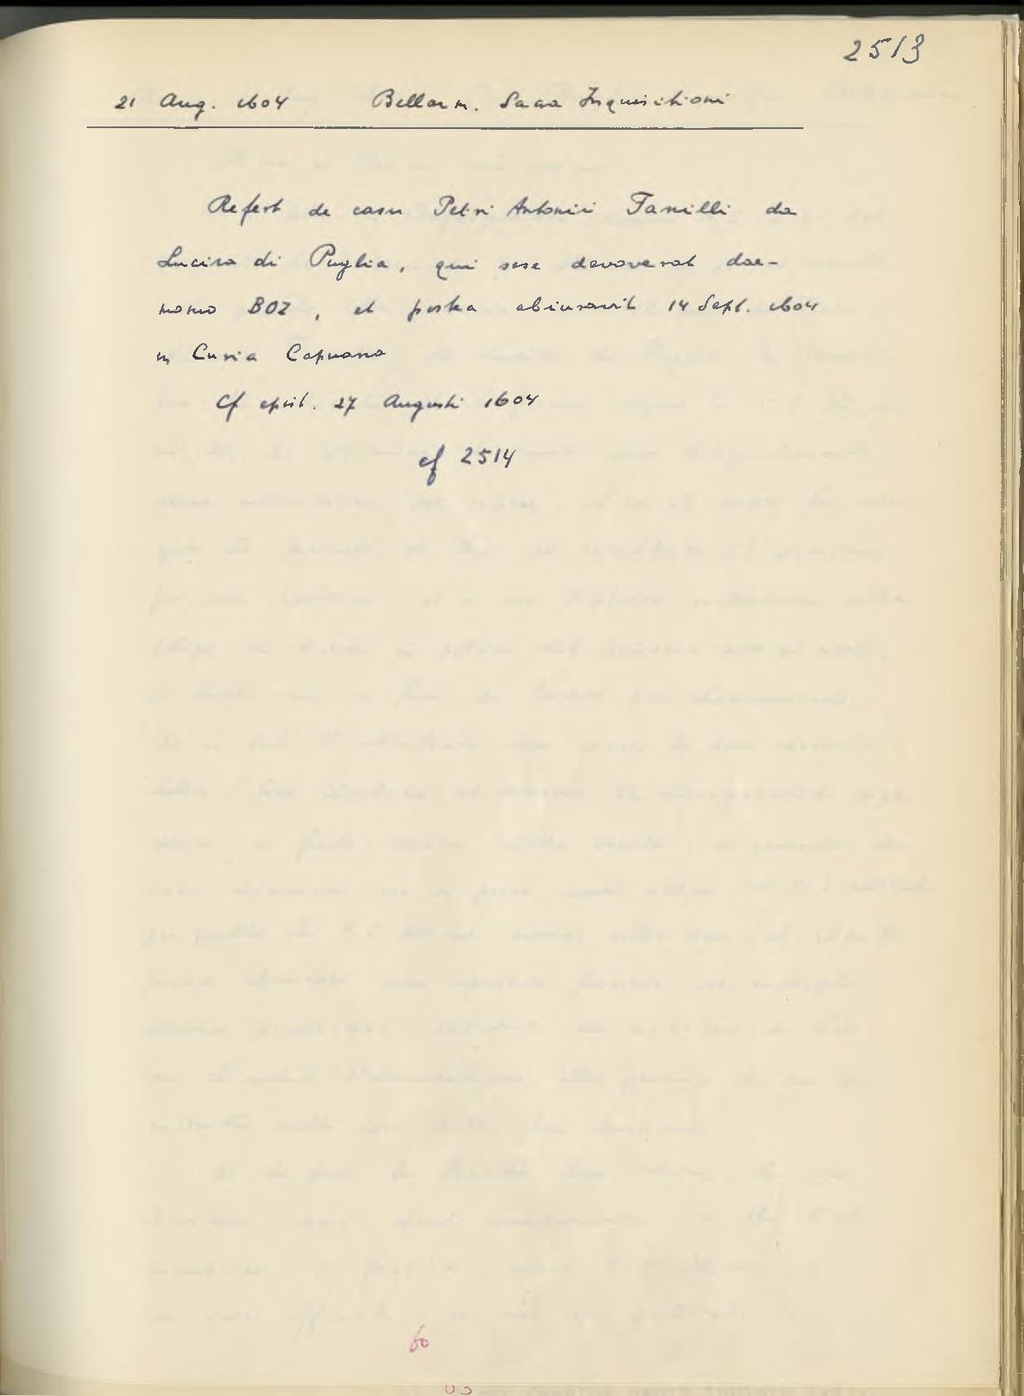 2513
21 Aug. 1604 Bellarm. Sacra Inquisitioni
Refert de casu Petri Antonii Fanelli da
Lucira di Puglia, qui sese devoverat dae-
mono BOZ, et postea abiuravit 14 Sept. 1604
in Curia Capuana
Cf epist. 27 Augusti 1604
cf 2514
60